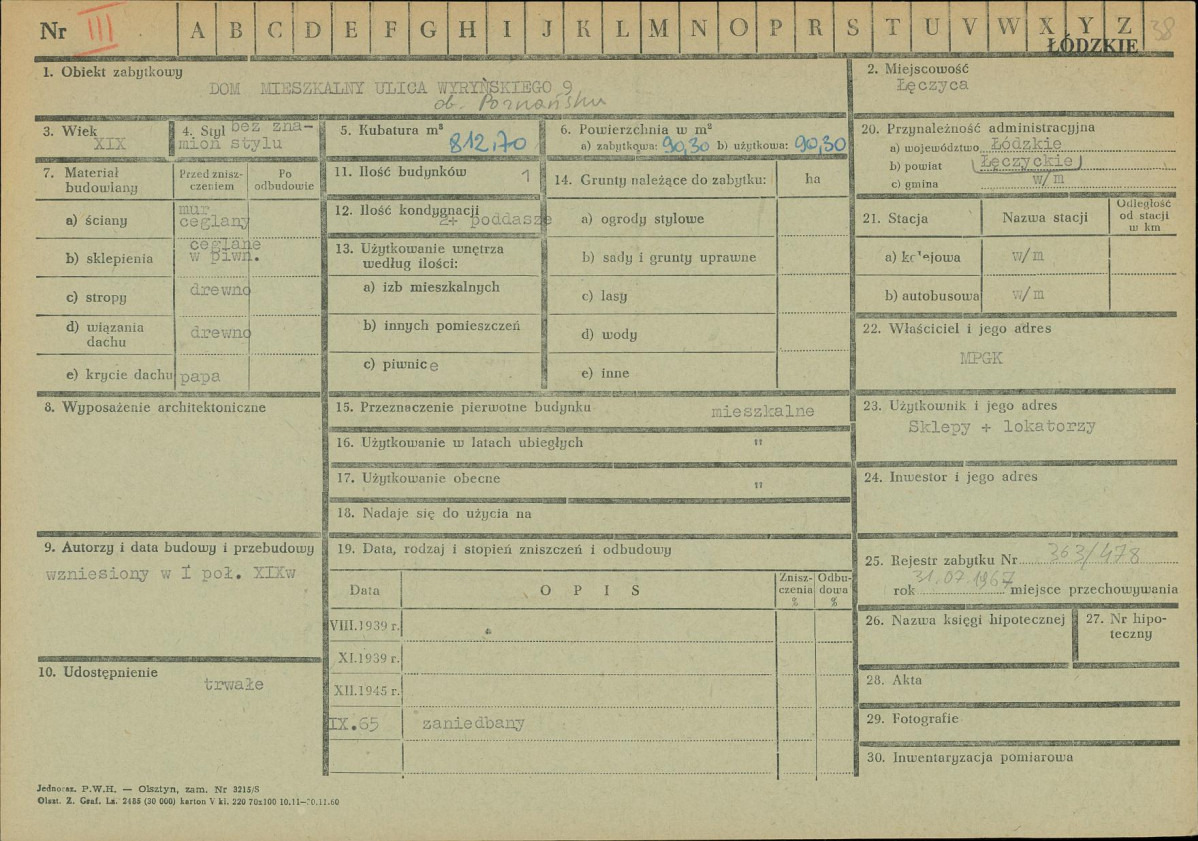 Nr III A B C D E F G H I J K L M N O P R S T U V W X Y Z 38
ŁÓDZKIE
1. Obiekt zabytkowy
DOM MIESZKALNY ULICA WYRYŃSKIEGO 9
ob. Poznańska
2. Miejscowość
Łęczyca
3. Wiek
XIX
4. Styl bez zna-
mion stylu
5. Kubatura m³
812,70
6. Powierzchnia w m²
a) zabytkowa: 90,30 b) użytkowa: 90,30
20. Przynależność administracyjna
a) województwo Łódzkie
b) powiat (Łęczyckie)
c) gmina w/m
7. Materiał budowlany
Przed znisz-
czeniem
Po
odbudowie
a) ściany
mur
ceglany
b) sklepienia
ceglane
w piwn.
c) stropy drewno
d) wiązania
dachu
drewno
e) krycie dachu papa
11. Ilość budynków 1
12. Ilość kondygnacji
2+ poddasze
13. Użytkowanie wnętrza
według ilości:
a) izb mieszkalnych
b) innych pomieszczeń
c) piwnice
14. Grunty należące do zabytku: ha
a) ogrody stylowe
b) sady i grunty uprawne
c) lasy
d) wody
e) inne
21. Stacja Nazwa stacji
Odległość
od stacji
w km
a) kolejowa w/m
b) autobusowa w/m
22. Właściciel i jego adres
MPGK
8. Wyposażenie architektoniczne
15. Przeznaczenie pierwotne budynku mieszkalne
16. Użytkowanie w latach ubiegłych "
17. Użytkowanie obecne "
18. Nadaje się do użycia na
23. Użytkownik i jego adres
Sklepy + lokatorzy
24. Inwestor i jego adres
9. Autorzy i data budowy i przebudowy
wzniesiony w I poł. XIXw
10. Udostępnienie
trwałe
19. Data, rodzaj i stopień zniszczeń i odbudowy
Data O P I S
Znisz-
czenia
%
Odbu-
dowa
%
VIII.1939 r.
XI.1939 r.
XII.1945 r.
IX.65 zaniedbany
25. Rejestr zabytku Nr 363/478
31.07.1967
rok miejsce przechowywania
26. Nazwa księgi hipotecznej
27. Nr hipo-
teczny
28. Akta
29. Fotografie
30. Inwentaryzacja pomiarowa
Jednoraz. P.W.H. — Olsztyn, zam. Nr 3215/S
Olszt. Z. Graf. Ls. 2485 (30 000) karton V kl. 220 70x100 10.11—10.11.60